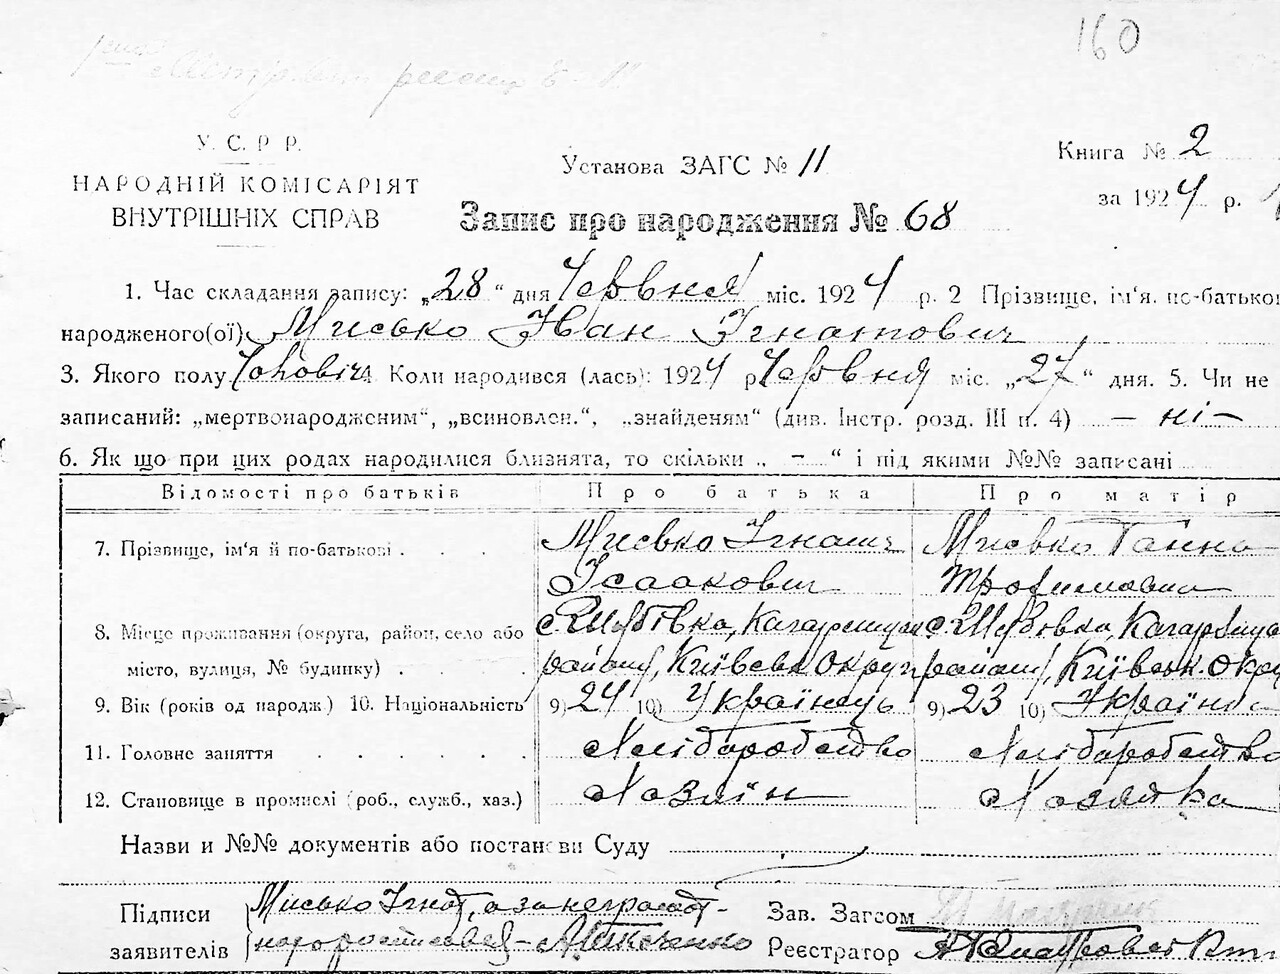 160
У. С. Р Р.
НАРОДНІЙ КОМІСАРІЯТ
ВНУТРІШНІХ СПРАВ
Установа ЗАГС № 11
Книга № 2
за 1924 р.
Запис про народження № 68
1. Час складання запису: „28“ дня Червня міс. 1924 р. 2 Прізвище, ім'я, по-батькові
народженого(ої) Мисько Іван Ігнатович
3. Якого полу Чоловіч. Коли народився (лась): 1924 р Червня міс. „27“ дня. 5. Чи не
записаний: „мертвонародженим“, „всиновлен.“, „знайденям“ (див. Інстр. розд. III п. 4) — ні —
6. Як що при цих родах народилися близнята, то скільки „ – “ і під якими №№ записані
Відомості про батьків Про батька Про матір
7. Прізвище, ім'я й по-батькові . . . . Мисько Ігнат Мисько Ганна
Ісаакович Трофимовна
8. Місце проживання (округа, район, село або
місто, вулиця, № будинку) . . району, Київськ. Округи району, Київськ. Округ
9. Вік (років од народж.) 10. Національність 9) 24 10) Українець 9) 23 10) Українка
11. Головне заняття . . . . . . Хліборобство Хліборобство
12. Становище в промислі (роб., служб., хаз.) Хазяїн Хазяйка
Назви и №№ документів або постанови Суду
Підписи Мисько Ігнат, а за неграмотн- Зав. Загсом
заявителів Реєстратор